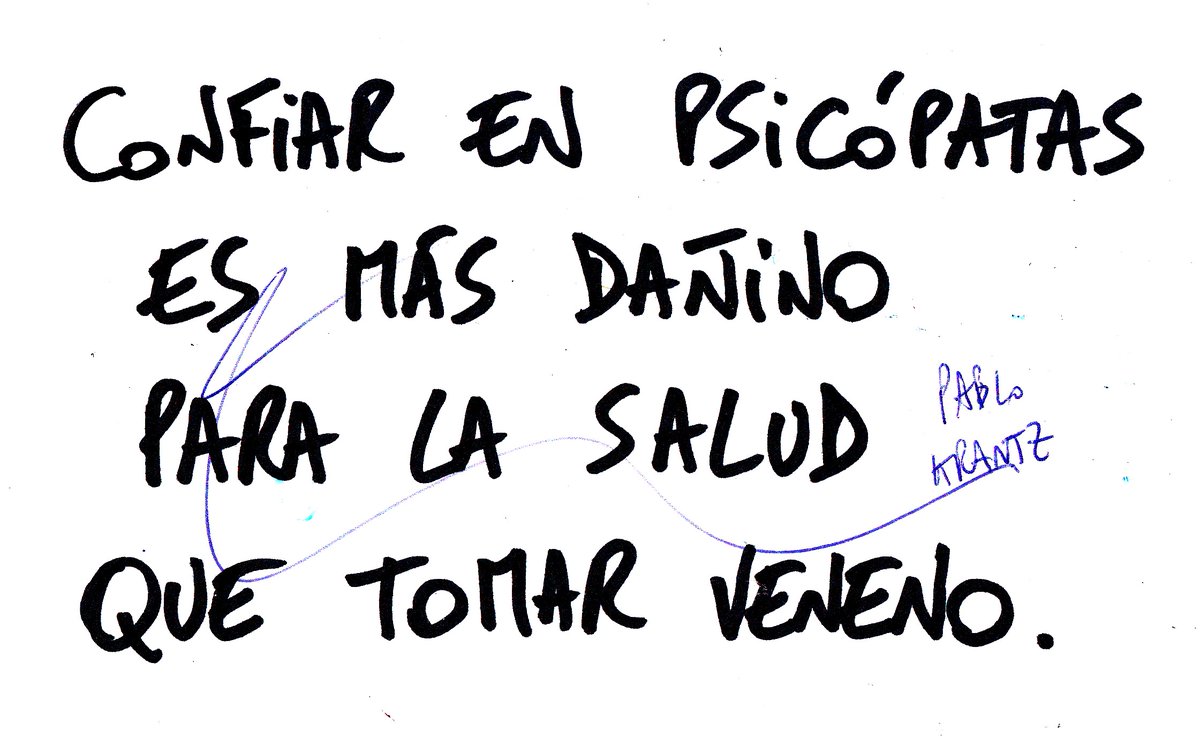 CONFIAR EN PSICÓPATAS
ES MÁS DAÑINO
PARA LA SALUD
QUE TOMAR VENENO.
PABLO
KRANTZ